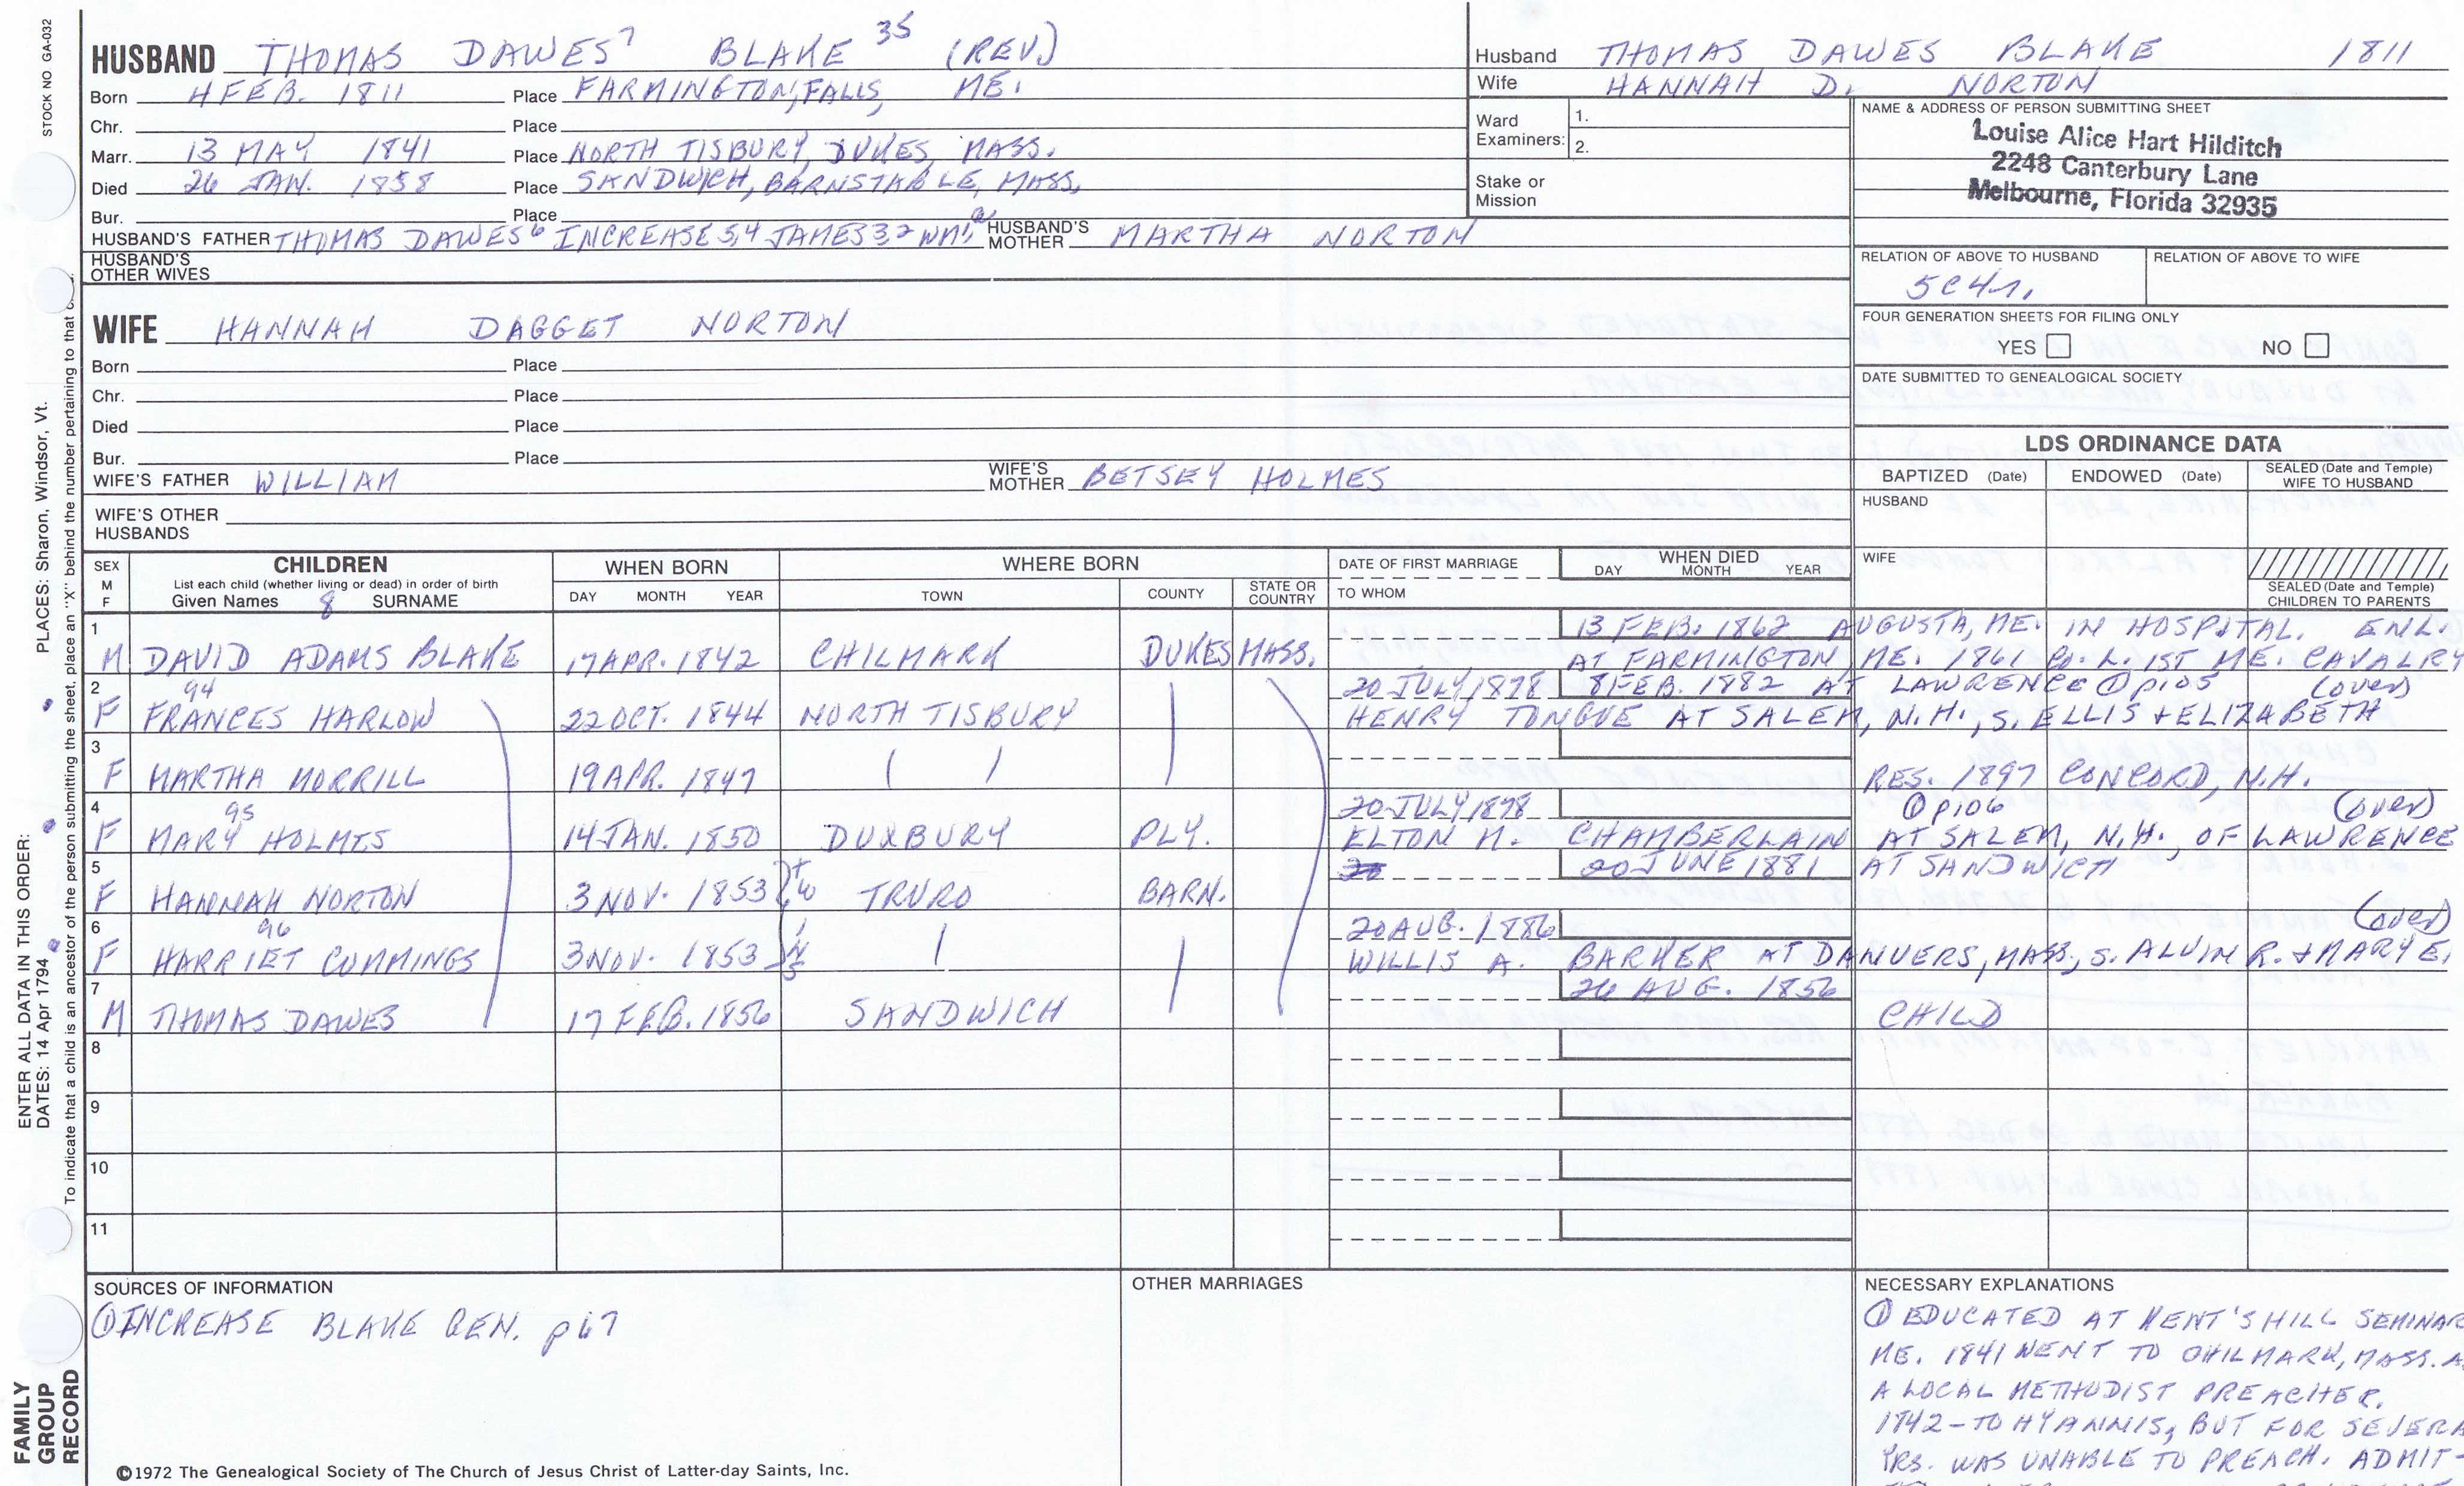 STOCK NO. GA-032
PLACES: Sharon, Windsor, Vt.
ENTER ALL DATA IN THIS ORDER:
DATES: 14 Apr 1794
To indicate that a child is an ancestor of the person submitting the sheet, place an "X" behind the number pertaining to that
FAMILY
GROUP
RECORD
HUSBAND THOMAS DAWES7 BLAKE 35 (REV.)
Born 4 FEB. 1811 Place FARMINGTON, FALLS, ME.
Chr. Place
Marr. 13 MAY 1841 Place NORTH TISBURY, DUKES, MASS.
Died 26 JAN. 1858 Place SANDWICH, BARNSTABLE, MASS.
Bur. Place
HUSBAND'S FATHER THOMAS DAWES6 INCREASE 5,4 JAMES 3,2 WM1 HUSBAND'S MOTHER MARTHA NORTON
HUSBAND'S
OTHER WIVES
Husband THOMAS DAWES BLAKE 1811
Wife HANNAH D. NORTON
Ward
Examiners: 1.
2.
Stake or
Mission
NAME & ADDRESS OF PERSON SUBMITTING SHEET
Louise Alice Hart Hilditch
2248 Canterbury Lane
Melbourne, Florida 32935
RELATION OF ABOVE TO HUSBAND RELATION OF ABOVE TO WIFE
5C4r.
FOUR GENERATION SHEETS FOR FILING ONLY
YES NO
DATE SUBMITTED TO GENEALOGICAL SOCIETY
WIFE HANNAH DAGGET NORTON
Born Place
Chr. Place
Died Place
Bur. Place
WIFE'S FATHER WILLIAM WIFE'S MOTHER BETSEY HOLMES
WIFE'S OTHER
HUSBANDS
LDS ORDINANCE DATA
BAPTIZED (Date) ENDOWED (Date) SEALED (Date and Temple) WIFE TO HUSBAND
HUSBAND
WIFE
SEALED (Date and Temple)
CHILDREN TO PARENTS
SEX
M
F
CHILDREN
List each child (whether living or dead) in order of birth
Given Names 8 SURNAME
WHEN BORN
DAY MONTH YEAR
WHERE BORN
TOWN COUNTY STATE OR COUNTRY
DATE OF FIRST MARRIAGE
TO WHOM
WHEN DIED
DAY MONTH YEAR
1 13 FEB. 1862 AUGUSTA, ME. IN HOSPITAL. ENL.
M DAVID ADAMS BLAKE 17 APR. 1842 CHILMARK DUKES MASS. AT FARMINGTON, ME. 1861 Co. L. 1ST ME. CAVALRY
2 94 20 JULY 1878 8 FEB. 1882 AT LAWRENCE ① p105 (over)
F FRANCES HARLOW 22 OCT. 1844 NORTH TISBURY HENRY TONGUE AT SALEM, N.H., S. ELLIS + ELIZABETH
3
F MARTHA MORRILL 19 APR. 1847 RES. 1897 CONCORD, N.H.
4 95 20 JULY 1878 ① p106 (over)
F MARY HOLMES 14 JAN. 1850 DUXBURY PLY. ELTON M. CHAMBERLAIN AT SALEM, N.H., OF LAWRENCE
5 20 JUNE 1881 AT SANDWICH
F HANNAH NORTON 3 NOV. 1853 TRURO BARN.
6 96 20 AUG. 1886 (over)
F HARRIET CUMMINGS 3 NOV. 1853 WILLIS A. BARKER AT DANVERS, MASS., S. ALVIN R. + MARY E.
7 26 AUG. 1856
M THOMAS DAWES 17 FEB. 1856 SANDWICH CHILD
8
9
10
11
SOURCES OF INFORMATION
① INCREASE BLAKE GEN. p67
OTHER MARRIAGES
NECESSARY EXPLANATIONS
① EDUCATED AT KENT'S HILL SEMINAR
ME. 1841 WENT TO CHILMARK, MASS. AS
A LOCAL METHODIST PREACHER.
1842 - TO HYANNIS, BUT FOR SEVERA
YRS. WAS UNABLE TO PREACH. ADMIT-
©1972 The Genealogical Society of The Church of Jesus Christ of Latter-day Saints, Inc.